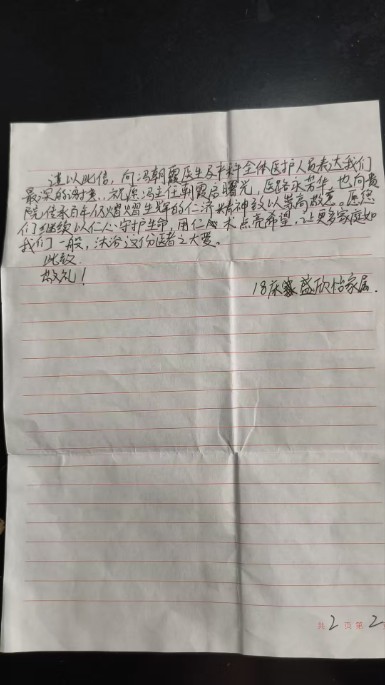 谨以此信，向冯朝霞医生及本科全体医护人员表达我们
最深的谢意。祝愿冯主任朝霞启曙光，医路永芳华，也向贵
院传承百年仍熠熠生辉的仁济精神致以崇高敬意。愿您
们继续以仁心守护生命，用仁术点亮希望，让更多家庭如
我们一般，沐浴这份医者大爱。
此致
敬礼！
18床 益欣怡家属
共 2 页 第 2